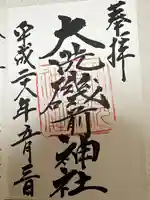 奉拝
大洗磯前神社
平成二八年五月三日